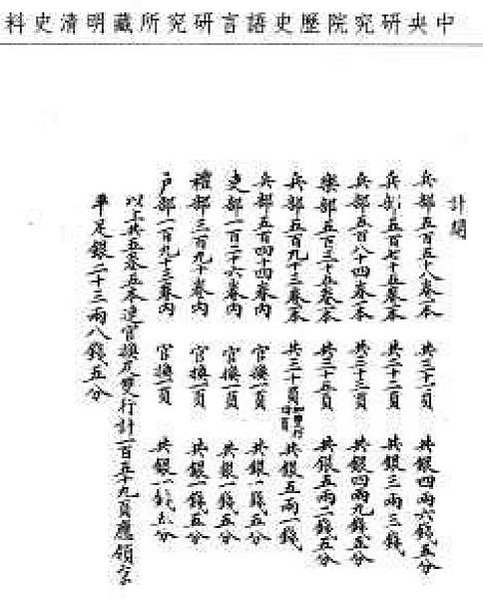 中央研究院歷史語言研究所藏明清史料
計開
兵部五百五十八卷一本 共三十一頁 共銀四兩六錢五分
兵部五百七十五卷一本 共二十二頁 共銀三兩三錢
兵部五百八十四卷一本 共三十三頁 共銀四兩九錢五分
樂部五百三十五卷一本 共三十五頁 共銀五兩二錢五分
兵部五百九十三卷一本 共三十頁 加雙行四頁 共銀五兩一錢
兵部五百四十四卷內 官換一頁 共銀一錢五分
吏部一百二十六卷內 官換一頁 共銀一錢五分
禮部三百九十卷內 官換一頁 共銀一錢五分
戶部一百九十三卷內 官換一頁 共銀一錢五分
以上共五卷五本連官換及雙行計一百五十九頁應領京
平足銀二十三兩八錢五分